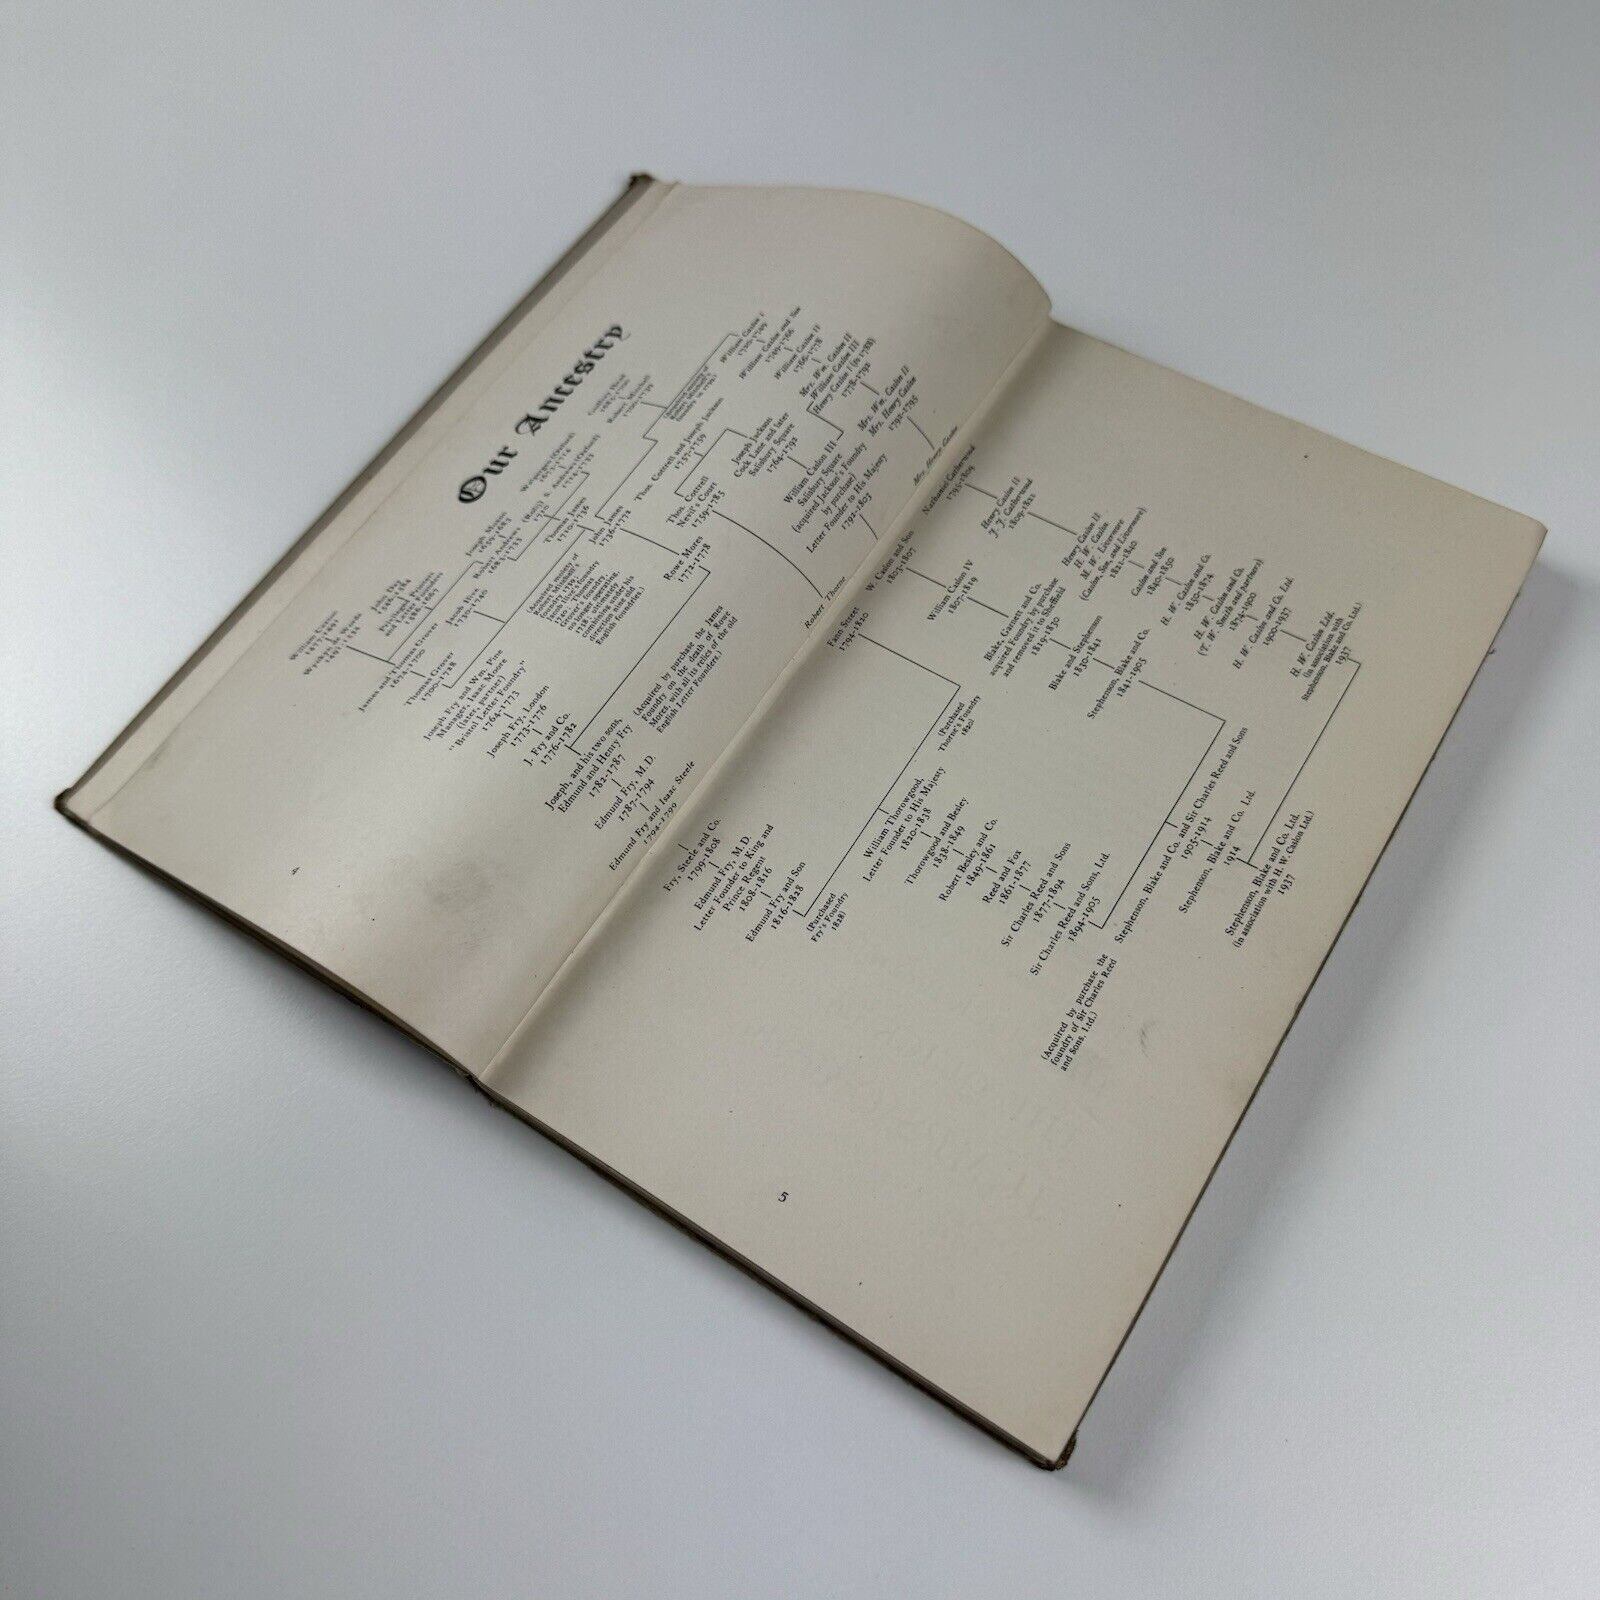 Our Ancestry
William Caxton
1477-1491
Wynkyn de Worde
1491-1534
John Day
1546-1584
Privileged Printers
and Letter Founders
1586-1667
Joseph Moxon
1659-1683
Robert Andrews
1683-1733
1730
Godfrey Head
Robert Mitchell
James and Thomas Grover
1674-1700
Thomas Grover
1700-1728
Jacob Ilive
1730-1740
Thomas James
1710-1736
John James
1736-1772
Rowe Mores
1772-1778
(Acquired by purchase the James
Foundry on the death of Rowe
Mores, with all its relics of the old
English Letter Founders.)
Joseph Fry and Wm. Pine
Manager, Isaac Moore
(later, partner)
"Bristol Letter Foundry"
1764-1773
Joseph Fry, London
1773-1776
J. Fry and Co.
1776-1782
Joseph, and his two sons,
Edmund and Henry Fry
1782-1787
Edmund Fry, M.D.
1787-1794
Edmund Fry and Isaac Steele
1794-1799
William Caslon I
1720-1749
William Caslon and Son
1749-1766
William Caslon II
1766-1778
Mrs. Wm. Caslon II
William Caslon III
Henry Caslon I (to 1788)
1778-1792
Mrs. Wm. Caslon II
Mrs. Henry Caslon
1792-1795
Mrs. Henry Caslon
Thos. Cottrell and Joseph Jackson
1757-1759
Thos. Cottrell
Nevil's Court
1759-1785
Joseph Jackson
Cock Lane and later
Salisbury Square
1764-1792
William Caslon III
Salisbury Square
(acquired Jackson's Foundry
by purchase)
Letter Founder to His Majesty
1792-1803
Robert Thorne
4
Nathaniel Catherwood
1795-1809
Henry Caslon II
J. J. Catherwood
1809-1821
Henry Caslon II
H. W. Caslon
M. W. Livermore
(Caslon, Son, and Livermore)
1821-1840
Caslon and Son
1840-1850
H. W. Caslon and Co.
1850-1874
H. W. Caslon and Co.
(T. W. Smith and partners)
1874-1900
H. W. Caslon and Co. Ltd.
1900-1937
H. W. Caslon Ltd.
(in association with
Stephenson, Blake and Co. Ltd.)
1937
W. Caslon and Son
1803-1807
William Caslon IV
1807-1819
Blake, Garnett and Co.
acquired Foundry by purchase
and removed it to Sheffield
1819-1830
Blake and Stephenson
1830-1841
Stephenson, Blake and Co.
1841-1905
Fann Street
1794-1820
(Purchased
Thorne's Foundry
1820)
William Thorowgood,
Letter Founder to His Majesty
1820-1838
Thorowgood and Besley
1838-1849
Robert Besley and Co.
1849-1861
Reed and Fox
1861-1877
Sir Charles Reed and Sons
1877-1894
Sir Charles Reed and Sons, Ltd.
1894-1905
Fry, Steele and Co.
1799-1808
Edmund Fry, M.D.
Letter Founder to King and
Prince Regent
1808-1816
Edmund Fry and Son
1816-1828
(Purchased
Fry's Foundry
1828)
Stephenson, Blake and Co. and Sir Charles Reed and Sons
1905-1914
Stephenson, Blake and Co. Ltd.
1914
Stephenson, Blake and Co. Ltd.
(in association with H. W. Caslon Ltd.)
1937
(Acquired by purchase the
foundry of Sir Charles Reed
and Sons, Ltd.)
5